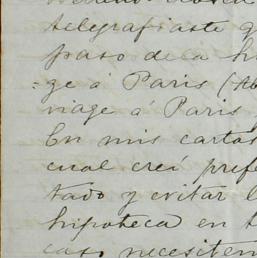 telegrafiaste q
paso de la hi
=ge á Paris (Ab
viage á Paris
En mis cartas
cual creí prefe
tado y evitar l
hipoteca en t
caso necesitem